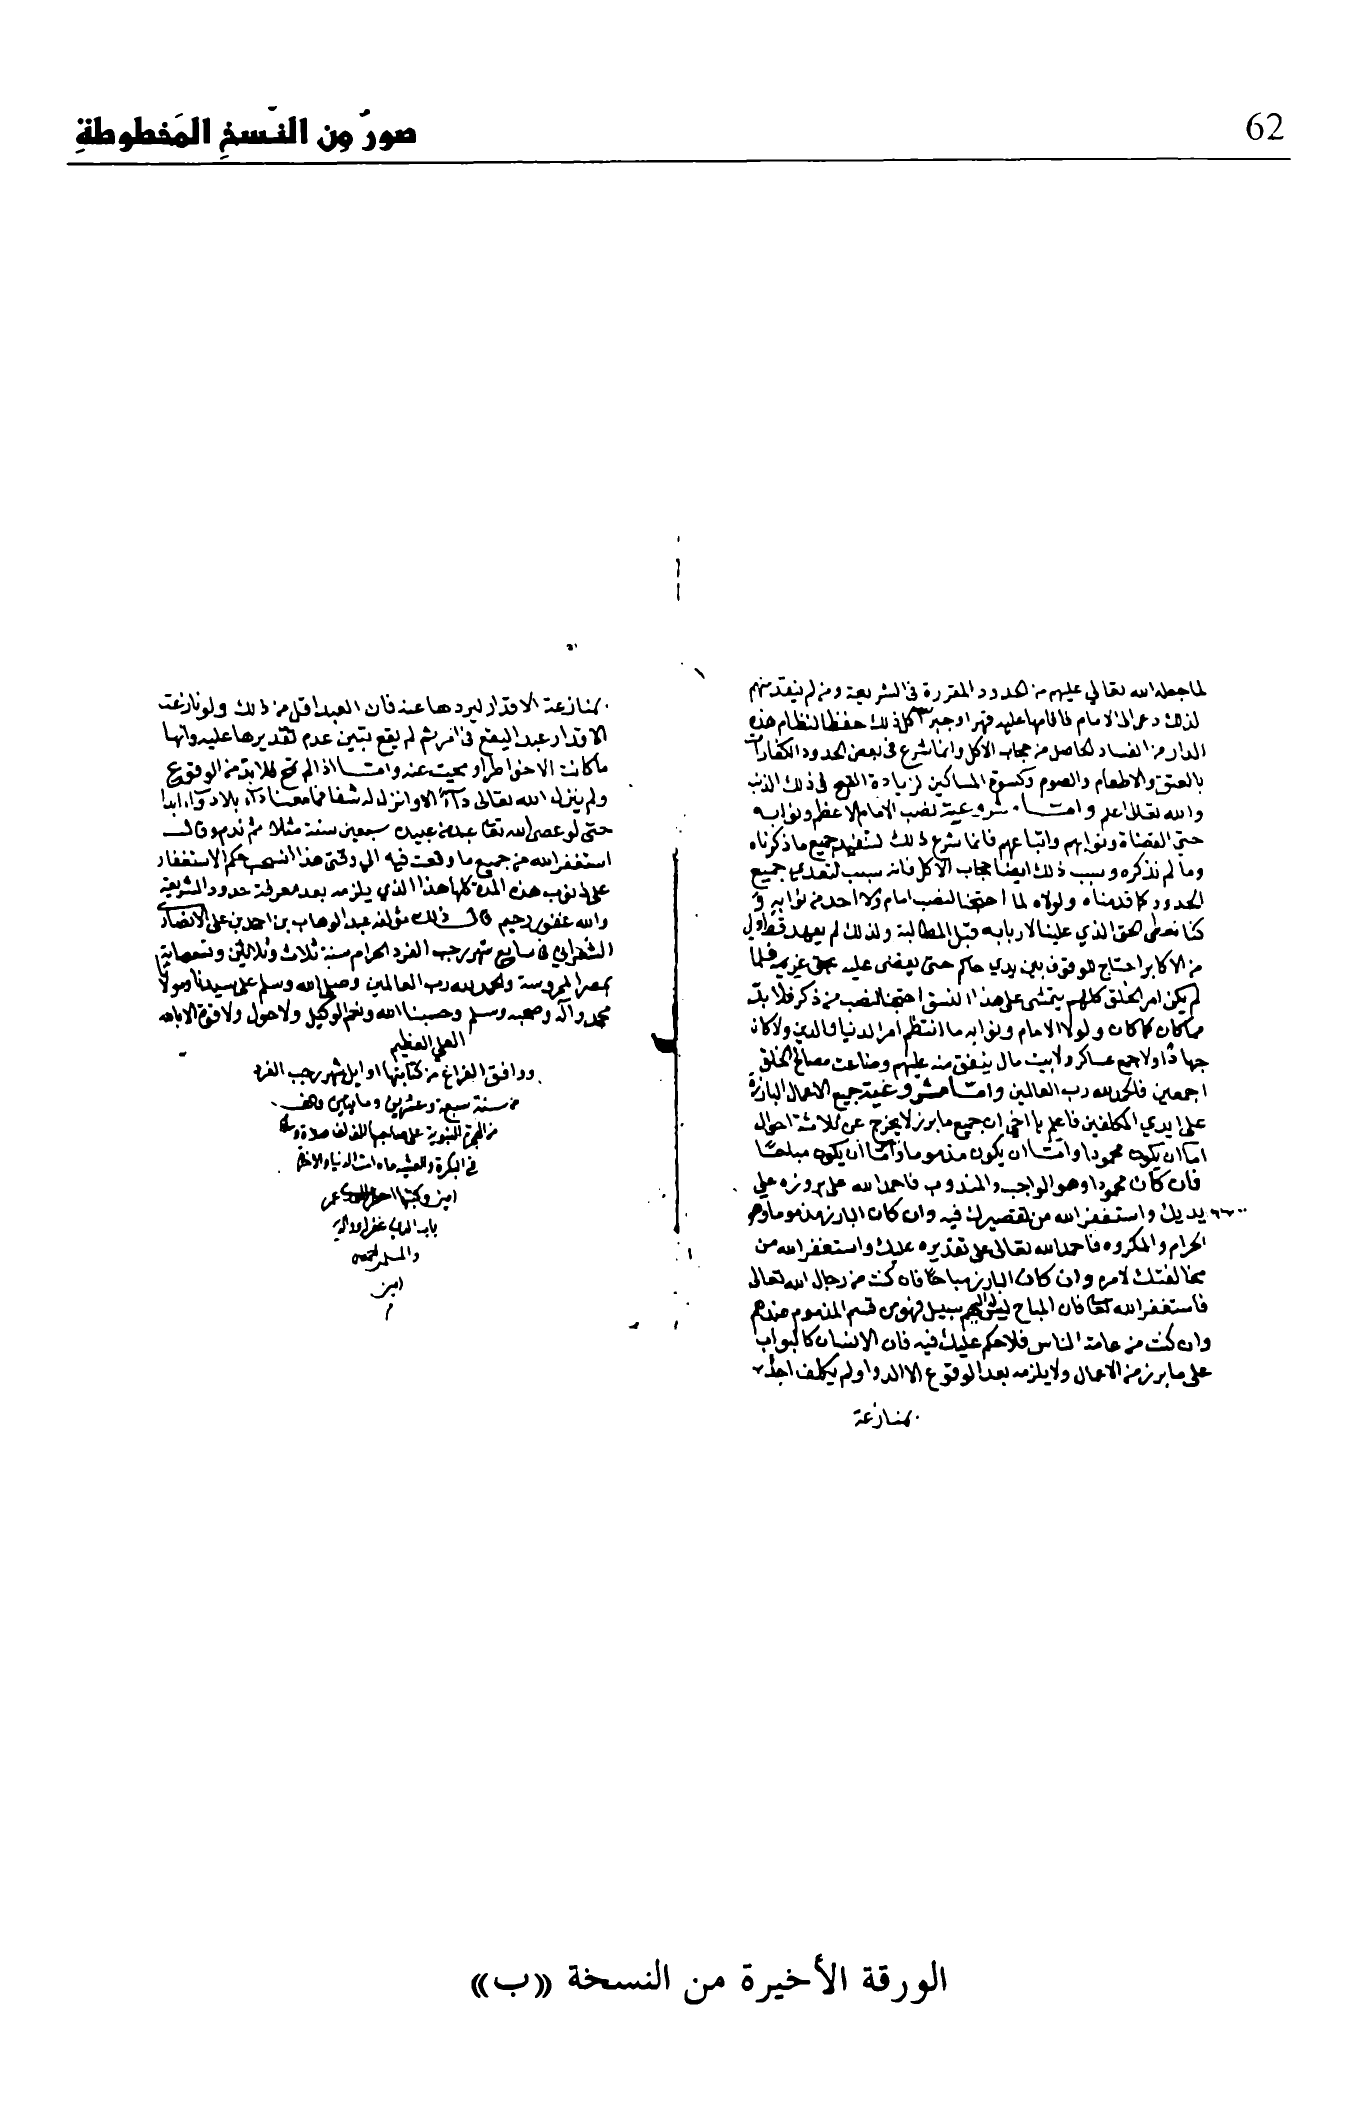 62
صور من النسخ المخطوطة
لما جعله الله تعالى عليهم من الحدود المقررة في الشريعة ومن لم ينقد منهم
لذلك دعوا الى الامام فاقامها عليه قهرا وجبرا كل ذلك حفظا لنظام هذه
الدار من الفساد الحاصل من حجاب الاكل وانما شرع في بعض الحدود الكفارات
بالعتق والاطعام والصوم وكسوة المساكين لزيادة القبح في ذلك الذنب
والله تعالى اعلم وامـــا مشروعية نصب الامام الاعظم ونوابه
حتى القضاة ونوابهم واتباعهم فانما شرع ذلك لتنفيذ جميع ما ذكرناه
وما لم نذكره وسبب ذلك ايضا حجاب الاكل فانه سبب لتعدي جميع
الحدود كما قدمناه ولولاه لما احتجنا لنصب امام ولا احد من نوابه و
كنا نعطى الحق الذي علينا لاربابه قبل المطالبة ولذلك لم يعهد قط لولي
من الاكابر احتاج للوقوف بين يدي حاكم حتى يقضى عليه بحق غريمه فلما
لم يكن امر الخلق كلهم يتمشى على هذا النسق احتجنا لنصب من ذكر فلا بد
مما كان كما كان ولولا الامام ونوابه ما انتظم امر الدنيا والدين ولا كان
جهاد ولا جمع عساكر ولا بيت مال ينفق منه عليهم وضاعت مصالح الخلق
اجمعين فالحمد لله رب العالمين وامـا مشروعية جميع الاعمال البارزة
على ايدي المكلفين فاعلم يا اخي ان جميع ما برز لا يخرج عن ثلاثة احوال
اما ان يكون محمودا واما ان يكون مذموما واما ان يكون مباحا
فان كان محمودا وهو الواجب والمندوب فاحمد الله على بروزه على
يديك واستغفر الله من تقصيرك فيه وان كان البارز مذموما وهو
الحرام والمكروه فاحمد الله تعالى على تقديره عليك واستغفر الله من
مخالفتك لامره وان كان البارز مباحا فان كنت من رجال الله تعالى
فاستغفر الله تعالى فان المباح ليس لهم سبيل فهو من قسم المذموم عندهم
وان كنت من عامة الناس فلا حكم عليك فيه فان الانسان كالبواب
على ما برز من الاعمال ولا يلزمه بعد الوقوع الا الدوا ولم يكلف احد
بمنازعة
بمنازعة الاقدار ليردها عنه فان العبد اقل من ذلك ولو نازعت
الاقدار عبدا ليقع في امر ثم لم يقع تبين عدم تقديرها عليه وانها
ما كانت الا خواطر او محيت عنه وامـــا اذا لم تمح فلا بد من الوقوع
ولم ينزل الله تعالى داء الا وانزل له شفا فما معنا داء بلا دواء ابدا
حتى لو عصى الله تعالى عبد من عبيده سبعين سنة مثلا ثم ندم وقال
استغفر الله من جميع ما وقعت فيه الى وقتى هذا انسحب حكم الاستغفار
على ذنوب هذه المدة كلها هذا الذي يلزمه بعد معرفة حدود الشريعة
والله غفور رحيم قال ذلك مؤلفه عبد الوهاب بن احمد بن على الانصاري
الشعراني في سابع شهر رجب الفرد الحرام سنة ثلاث وثلاثين وتسعماية
بمصر المحروسة والحمد لله رب العالمين وصلى الله وسلم على سيدنا ومولانا
محمد واله وصحبه وسلم وحسبنا الله ونعم الوكيل ولا حول ولا قوة الا بالله
العلي العظيم
ووافق الفراغ من كتابتها اوايل شهر رجب الفرد
من سنة سبعة وعشرين ومايتين والف
من الهجرة النبوية على صاحبها
في البكرة والعشية ما دامت الدنيا والاخرة
امين وكتبها
غفر له ولوالديه
والمسلمين
امين
م
الورقة الأخيرة من النسخة «ب»